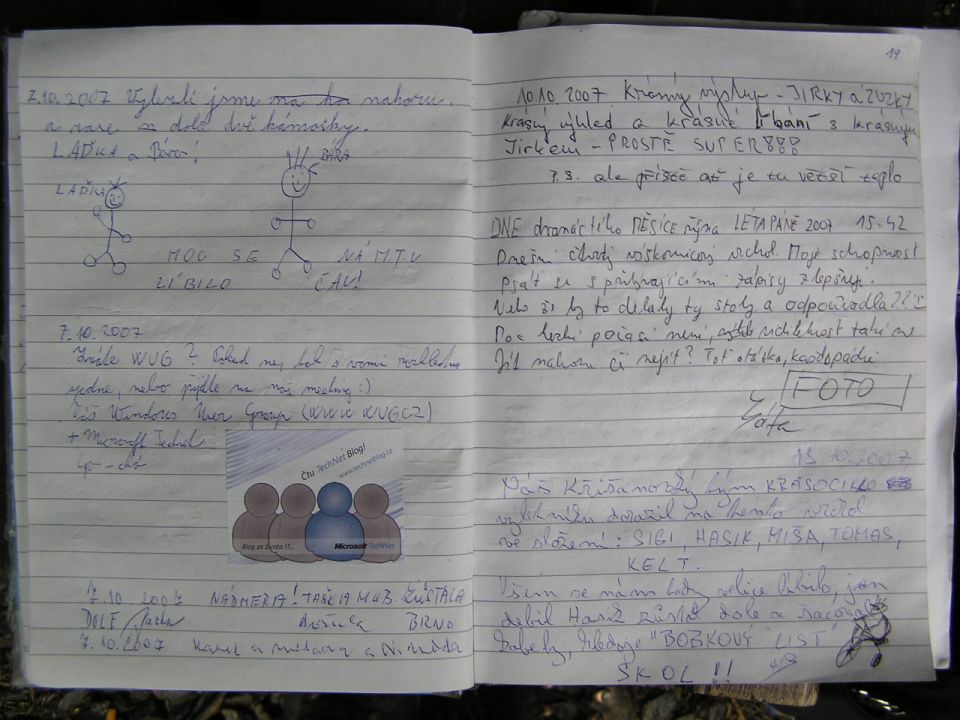 7.10.2007 Vylezli jsme nahoru.
a nase dole dvě kámošky.
LAĎKA a Bára!
BÁRA
LAĎKA
MOC SE NÁM TU
LÍBILO ČAU!
7.10.2007
Znáte WUG? Pokud ne, tak s vámi
nebo přijďte na náš meeting :)
Váš Windows User Group (WWW WUG.CZ)
+ Microsoft Technet
Čtu TechNet Blog!
www.technetblog.cz
Blog ze života IT...
Microsoft TechNet
7.10 2007 NÁDHERA! TAŠKA ZŮSTALA
DOLE BRNO
7.10.2007 Karel a a
19
10.10.2007 Krásný výstup - JIRKY A ZUZKY
Krásný výhled a krásné líbaní s krásným
Jirkem - PROSTĚ SUPER!!!
P.S. ale příště ať je tu větší teplo
DNE dvanáctého MĚSÍCE října LÉTA PÁNĚ 2007 15:42
Dnešní čtvrtý vrchol. Moje schopnost
psát se s přibývajícími zápisy zlepšuje.
Nebo že by to dělaly ty stoly a odpočívadla??
Moc hezké počasí není, viditelnost také ne
Jít nahoru či nejít? Toť otázka, každopádně
FOTO
13.10.2007
Náš tým KRASOCIKLO
dorazil na tento vrchol
ve složení: SIGI, HASIK, MIŠA, TOMAS,
KELT.
Všem se nám tady velice líbilo, jen
debil Hasik zůstal dole a
"BOBKOVÝ LIST"
ŠKOL!!